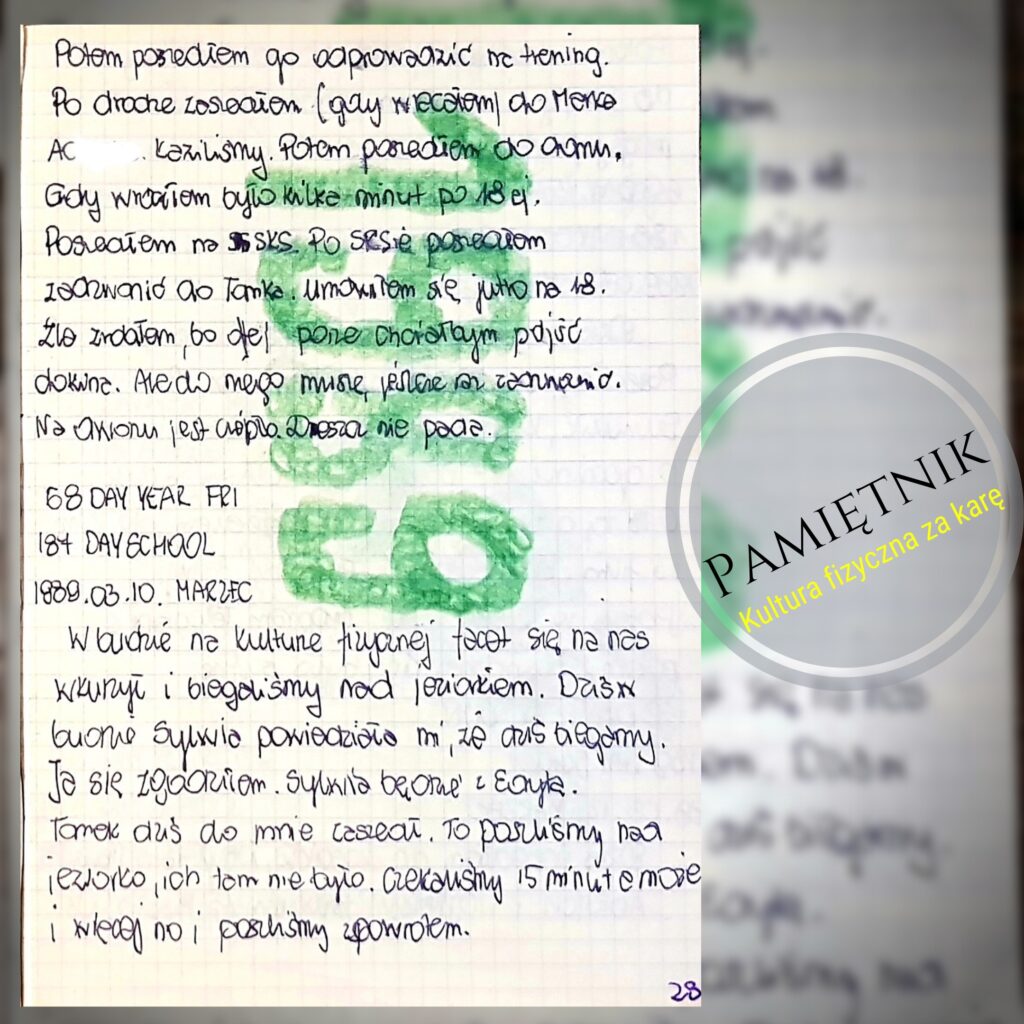 Potem poszedłem go odprowadzić na trening.
Po drodze zaszedłem (gdy wracałem) do Marka
AC . Łaziliśmy. Potem poszedłem do domu.
Gdy wróciłem było kilka minut po 18 ej.
Poszedłem na SKS. Po SKSie poszedłem
zadzwonić do Tomka. Umówiłem się jutro na 18.
Źle zrobiłem, bo o tej porze chciałbym pójść
do kina. Ale do niego muszę jeszcze raz zadzwonić.
Na dworu jest ciepło. Deszcz nie pada.
68 DAY YEAR FRI
184 DAY SCHOOL
1989.03.10. MARZEC
W budzie na kulturze fizycznej facet się na nas
wkurzył i biegaliśmy nad jeziorkiem. Dziś w
budzie Sylwia powiedziała mi, że dziś biegamy.
Ja się zgodziłem. Sylwia będzie z Edytą.
Tomek dziś do mnie zaszedł. To poszliśmy nad
jeziorko, ich tam nie było. Czekaliśmy 15 minut a może
i więcej no i poszliśmy zpowrotem.
28
PAMIĘTNIK
Kultura fizyczna za karę